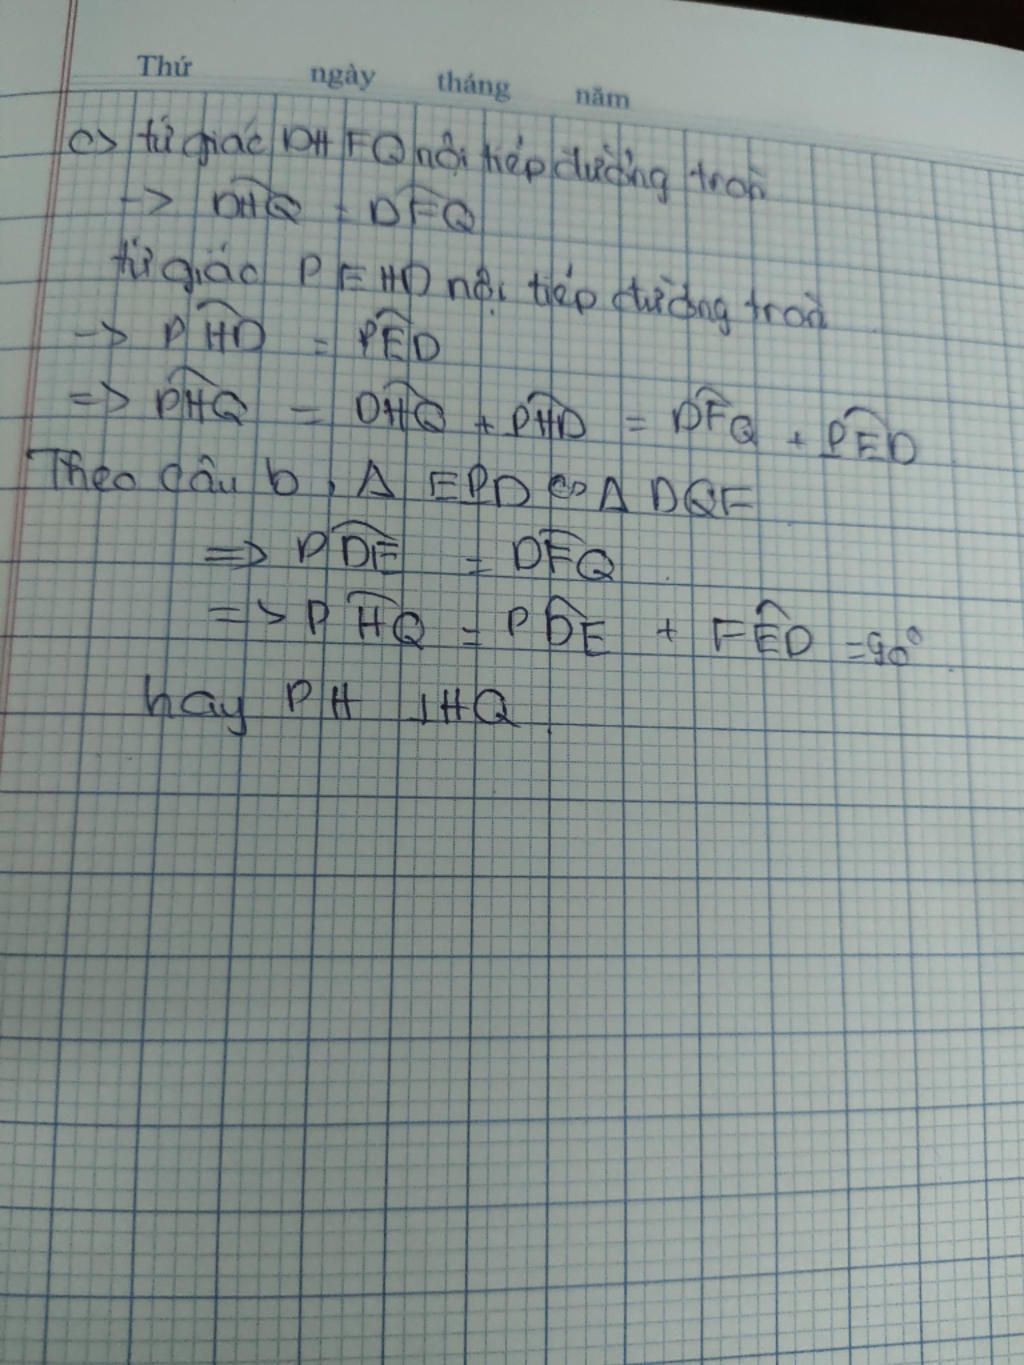 Thứ ngày tháng năm
c> tứ giác DHFQ nội tiếp đường tròn
-> DHQ = DFQ
tứ giác PEHD nội tiếp đường tròn
-> PHD = PED
=> PHQ = DHQ + PHD = DFQ + PED
Theo câu b, Δ EPD ∽ Δ DQF
=> PDE = DFQ
=> PHQ = PDE + FED = 90°
hay PH ⊥ HQ.